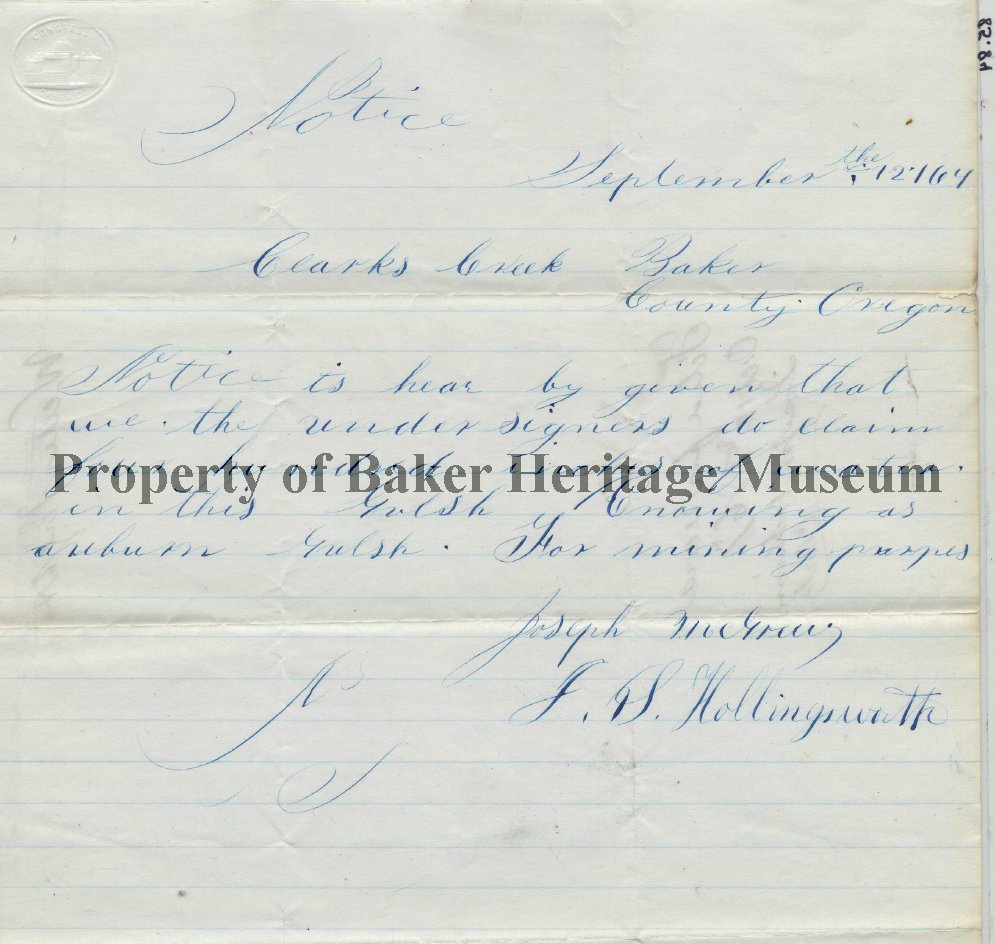 CONGRESS
82.84
Notice
September the 12 1864
Clarks Creek Baker
County. Oregon
Notice is hear by given that
we. the undersigners do claim
Property of Baker Heritage Museum
in this Gulsh Knowing as
auburn Gulsh. For mining purpes
Joseph McGrew
J. S. Hollingsworth